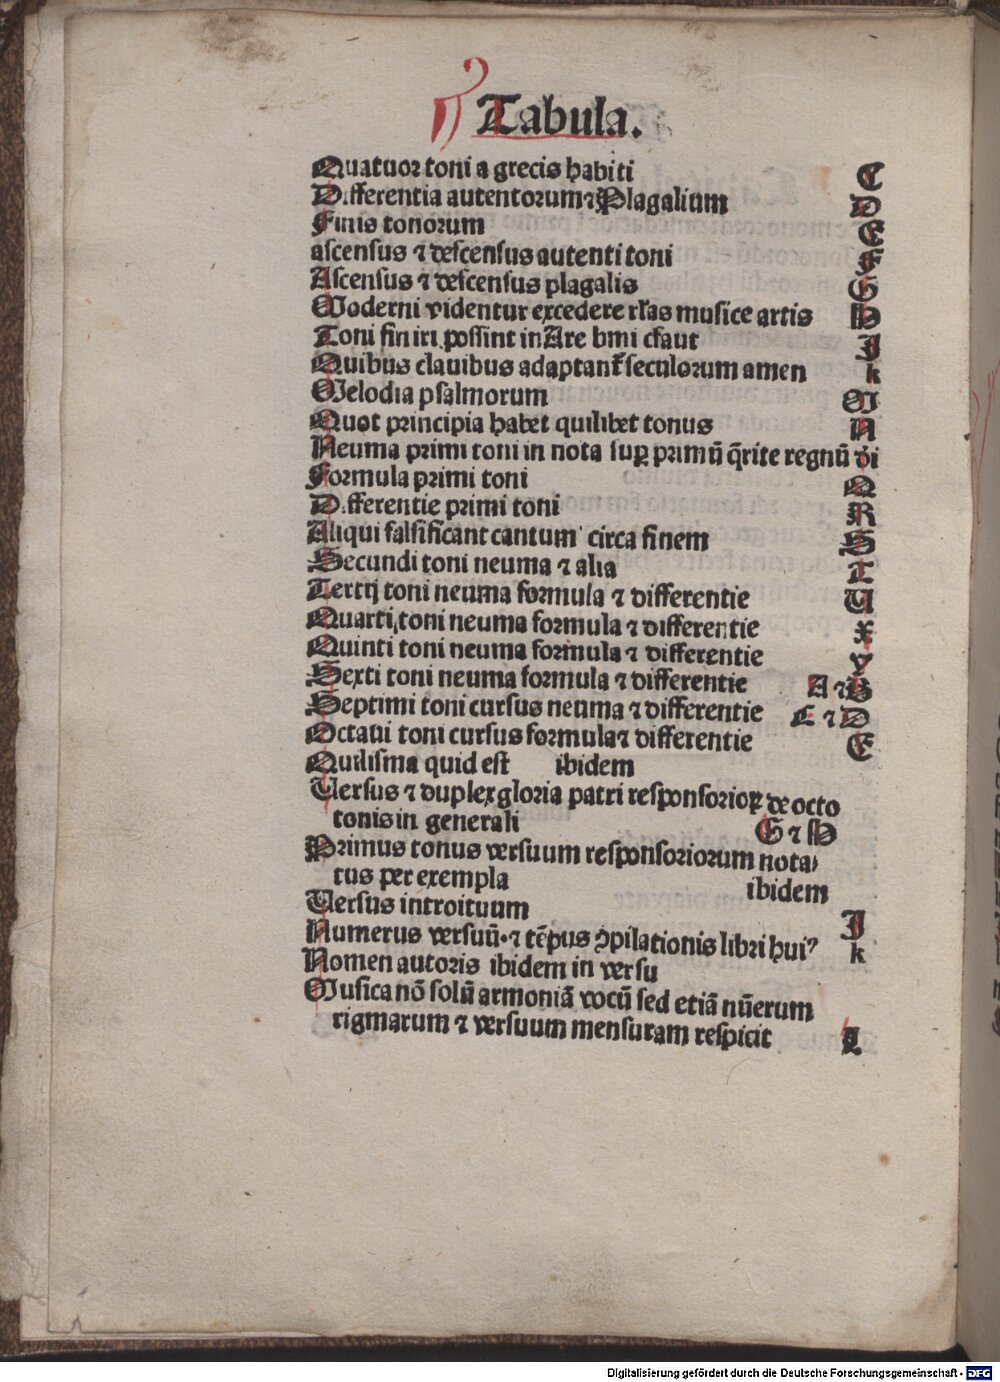 Tabula.
Quatuor toni a grecis habiti C
Differentia autentorum ⁊ Plagalium D
Finis tonorum E
ascensus ⁊ descensus autenti toni F
Ascensus ⁊ descensus plagalis G
Moderni videntur excedere rl'as musice artis H
Toni finiri possint in Are bmi cfaut J
Quibus clauibus adaptant᷑ seculorum amen k
Melodia psalmorum M
Quot principia habet quilibet tonus N
Neuma primi toni in nota suꝑ primū q̄rite regnū di
Formula primi toni Q
Differentie primi toni R
Aliqui falsificant cantum circa finem S
Secundi toni neuma ⁊ alia T
Tertij toni neuma formula ⁊ differentie U
Quarti toni neuma formula ⁊ differentie x
Quinti toni neuma formula ⁊ differentie y
Sexti toni neuma formula ⁊ differentie A ⁊ B
Septimi toni cursus neuma ⁊ differentie C ⁊ D
Octaui toni cursus formula ⁊ differentie E
Quilisma quid est ibidem
Uersus ⁊ duplex gloria patri responsorioꝝ de octo
tonis in generali G ⁊ H
Primus tonus versuum responsoriorum nota/
tus per exempla ibidem
Uersus introituum J
Numerus versuū. ⁊ tēpus ꝯpilationis libri huiꝰ k
Nomen autoris ibidem in versu
Musica nō solū armoniā vocū sed etiā nūerum
rigmarum ⁊ versuum mensuram respicit L
Digitalisierung gefördert durch die Deutsche Forschungsgemeinschaft - DFG